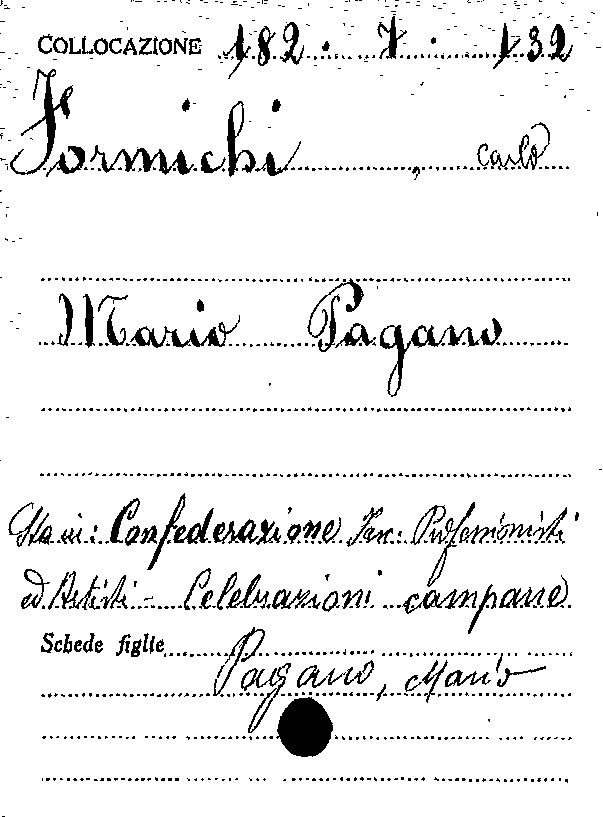 COLLOCAZIONE 182. 7. 132
Formichi, Carlo
Mario Pagano
Sta in: Confederazione Fasc. Professionisti
ed Artisti - Celebrazioni campane
Schede figlie
Pagano, Mario